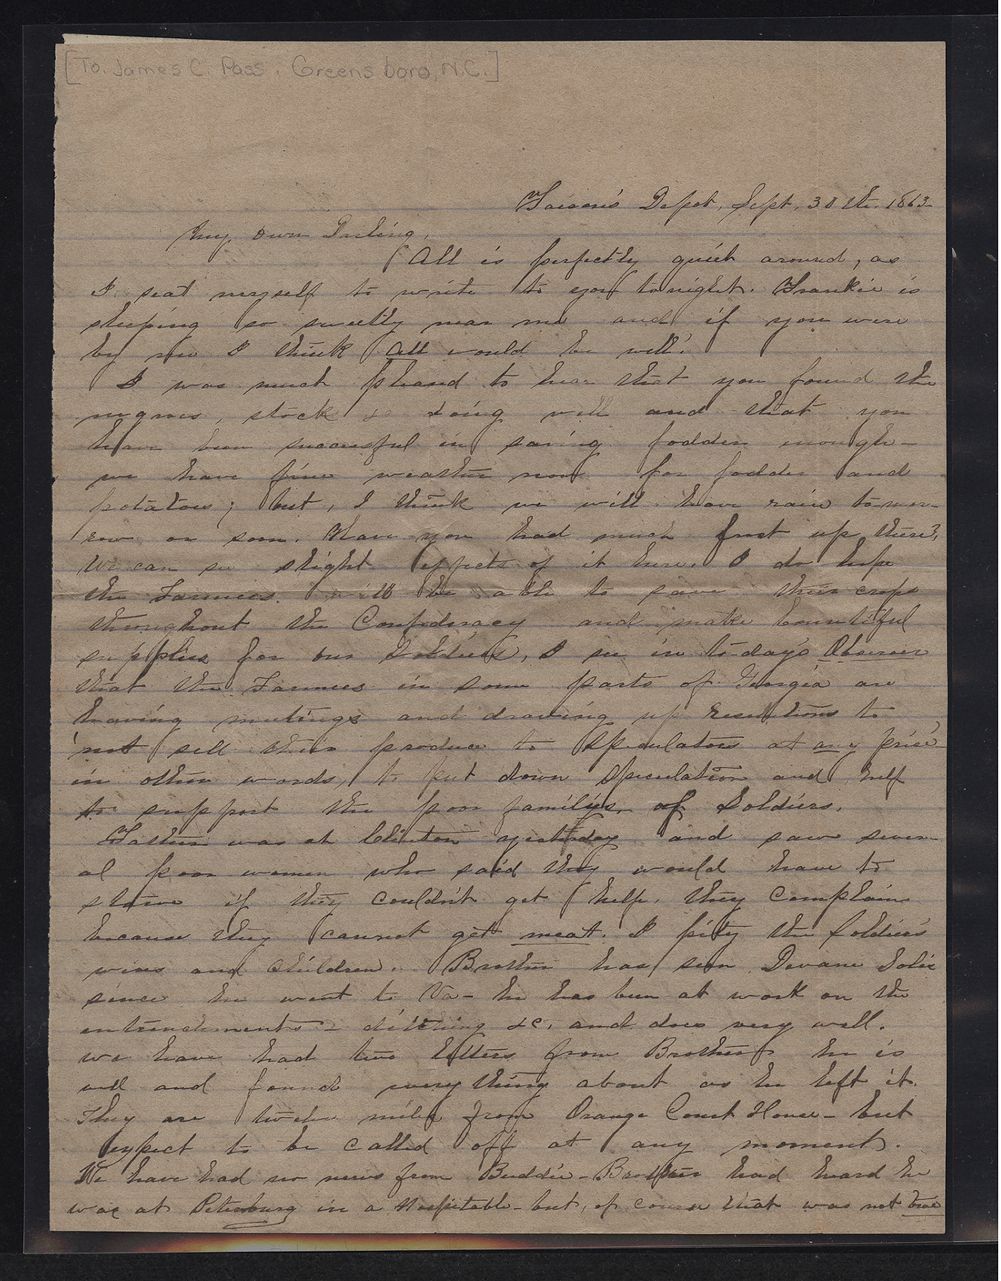 [To. James C. Pass. Greensboro, N.C.]
Depot, Sept. 30th. 1863-
My own Darling,
All is perfectly quiet around, as
I seat myself to write to you tonight. Frankie is
sleeping so sweetly near me and if you were
by me I think All would be well.
I was much pleased to hear that you found the
negroes, stock &c doing well and that you
have been successful in saving fodder enough-
we have fine weather now for fodder and
potatoes; but, I think we will have rain tomor-
row or soon. Have you had much frost up there?
We can see slight effects of it here. I do hope
the Farmers will be able to save their crops
throughout the Confederacy and make bountiful
supplies for our Soldiers, I see in to-day's Observer
that the Farmers in some parts of Georgia are
having meetings and drawing up resolutions to
"not sell their produce to Speculators at any price"
in other words, to put down speculation and help
to support the poor families of Soldiers.
Father was at Clinton yesterday and saw sever-
al poor women who said they would have to
starve if they couldn't get help, they complain
because they cannot get meat. I pity the Soldiers'
wives and children. Brother has seen Devane
since he went to Va- he has been at work on the
entrenchments - ditching &c. and does very well.
we have had two letters from Brother he is
well and found every thing about as he left it.
They are twelve miles from Orange Court House- but
expect to be called off at any moment.
We have had no news from Buddie- Brother had heard he
was at Petersburg in a Hospitable- but, of course that was not true